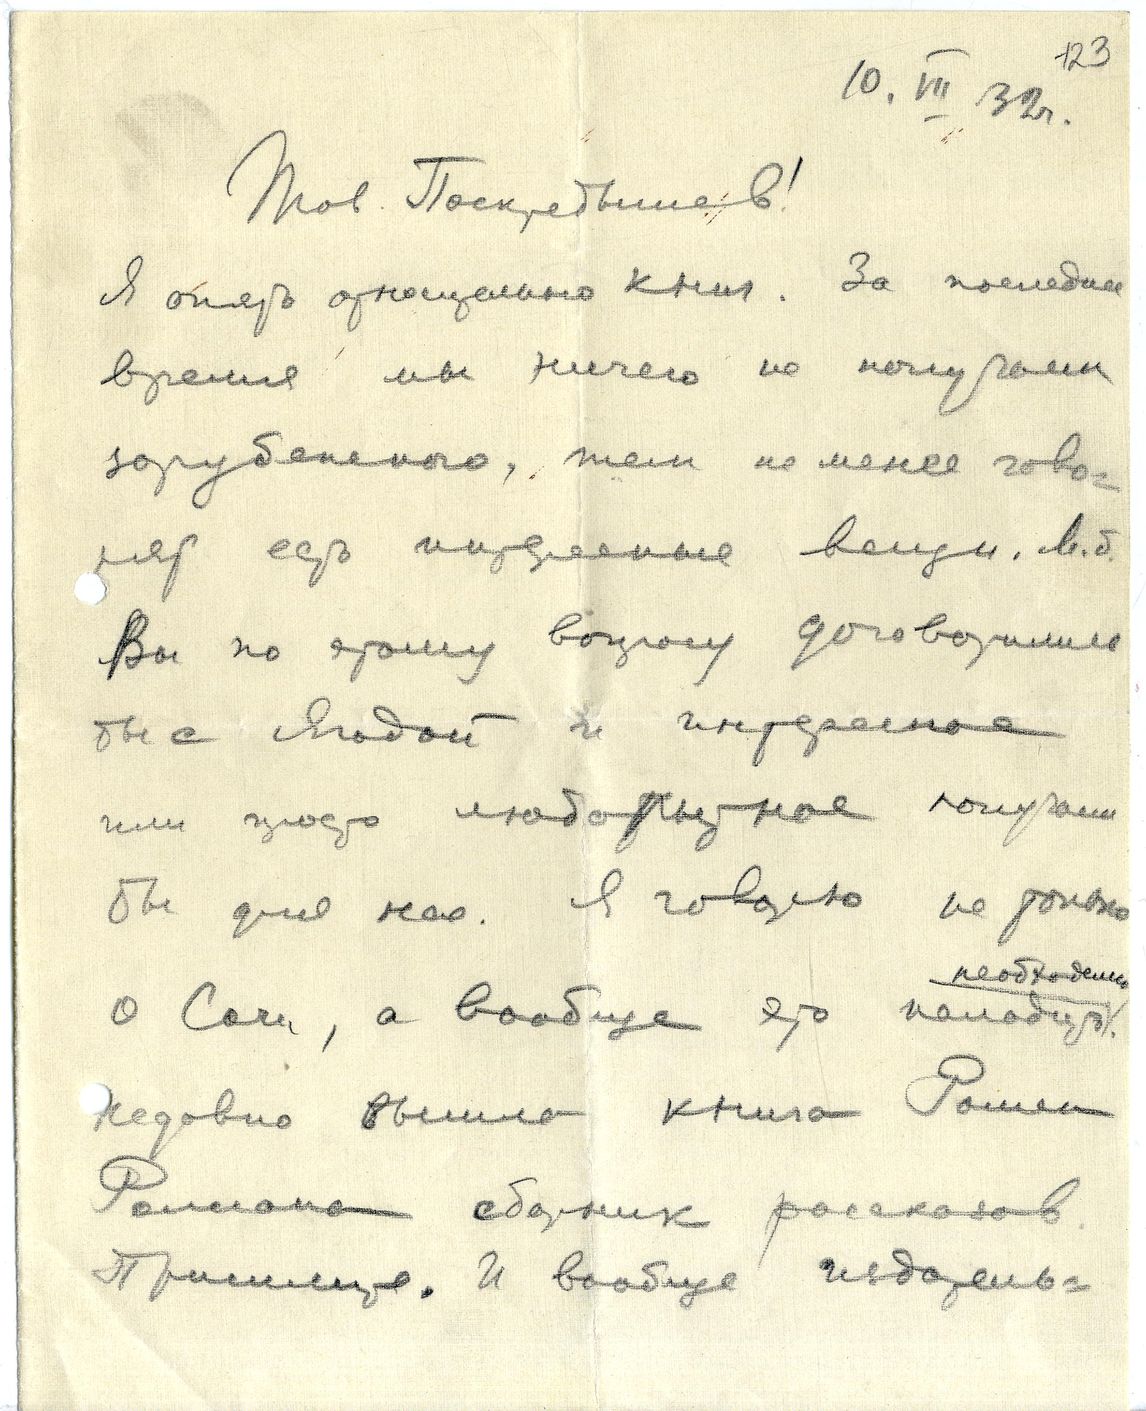 123
10. VII 32 г.
Тов. Поскребышев!
Я опять относительно книг. За последнее
время мы ничего не получали
зарубежного, тем не менее гово-
рят есть интересные вещи. М.б.
Вы по этому вопросу договорились
бы с Ягодой и интересное
или просто любопытное получали
бы для нас. Я говорю не только
необходимо
о Сочи, а вообще это наладить.
Недавно вышла книга Ромен
Роллана сборник рассказов
И вообще издатель-